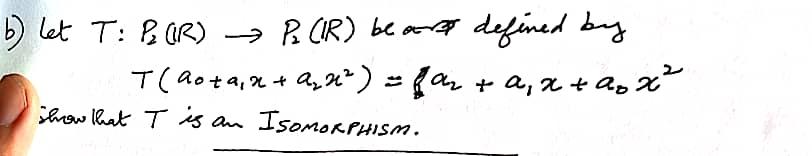 b) Let T: P₂(ℝ) → P₂(ℝ) be defined by
T(a₀+a₁x + a₂x²) = a₂ + a₁x + a₀x²
Show that T is an ISOMORPHISM.